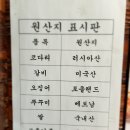 원산지 표시판
품목 원산지
코다리 러시아산
갈비 미국산
오징어 포클랜드
쭈꾸미 베트남
쌀 국내산